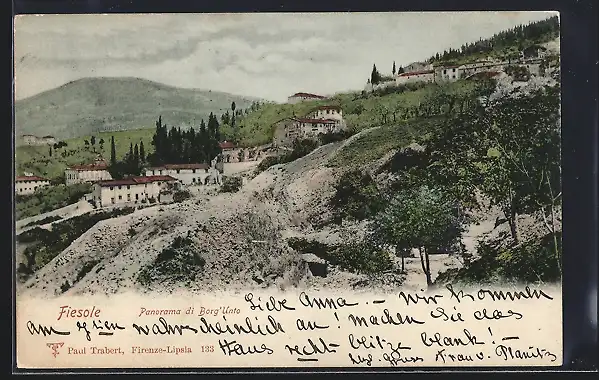 Fiesole Panorama di Borg'Unto
Liebe Anna. – wir kommen
am 9ten wahrscheinlich an! machen Sie das
Haus recht blitze blank!
hzl grüss Frau v. Planitz
Paul Trabert, Firenze-Lipsia 133